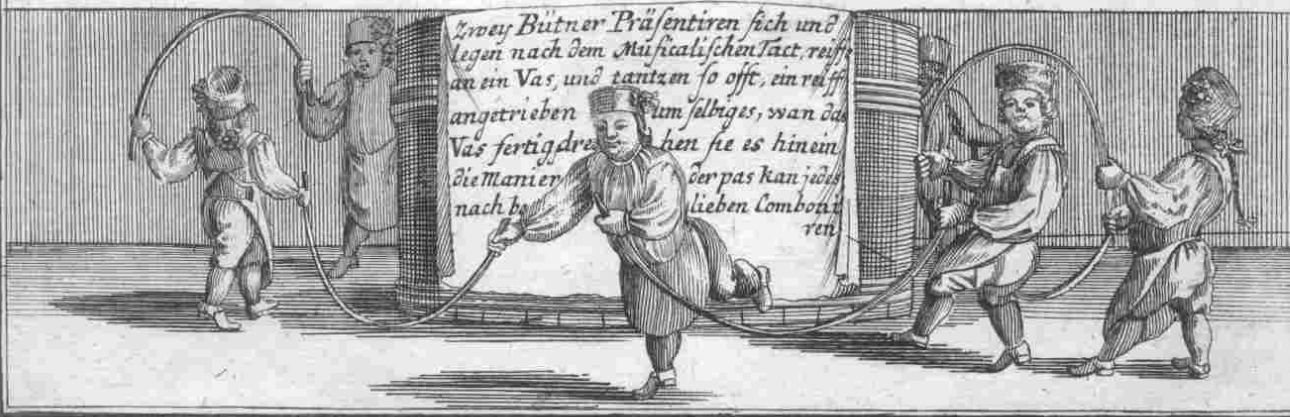 Zwey Bütner Präsentiren sich und
legen nach dem Musicalischen Tact, reiffe
an ein Vas, und tantzen so offt, ein reiff
angetrieben um selbiges, wan das
Vas fertig, dre hen sie es hinein
die Manier der pas kan jedes
nach be lieben Componi
ren